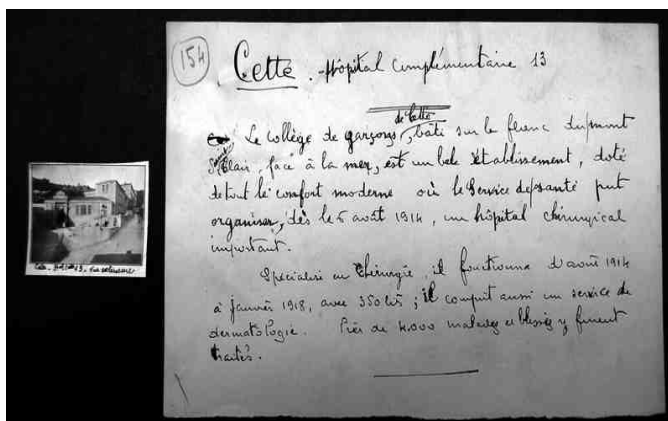 154
Cette. - Hôpital complémentaire 13
de Cette
Le collège de garçons, bâti sur le flanc du mont
St Clair, face à la mer, est un bel établissement, doté
de tout le confort moderne où le Service de santé put
organiser, dès le 6 août 1914, un hôpital chirurgical
important.
Spécialisé en chirurgie, il fonctionna d'août 1914
à janvier 1918, avec 350 lits ; il comprit aussi un service de
dermatologie. Près de 4.000 malades et blessés y furent
traités.